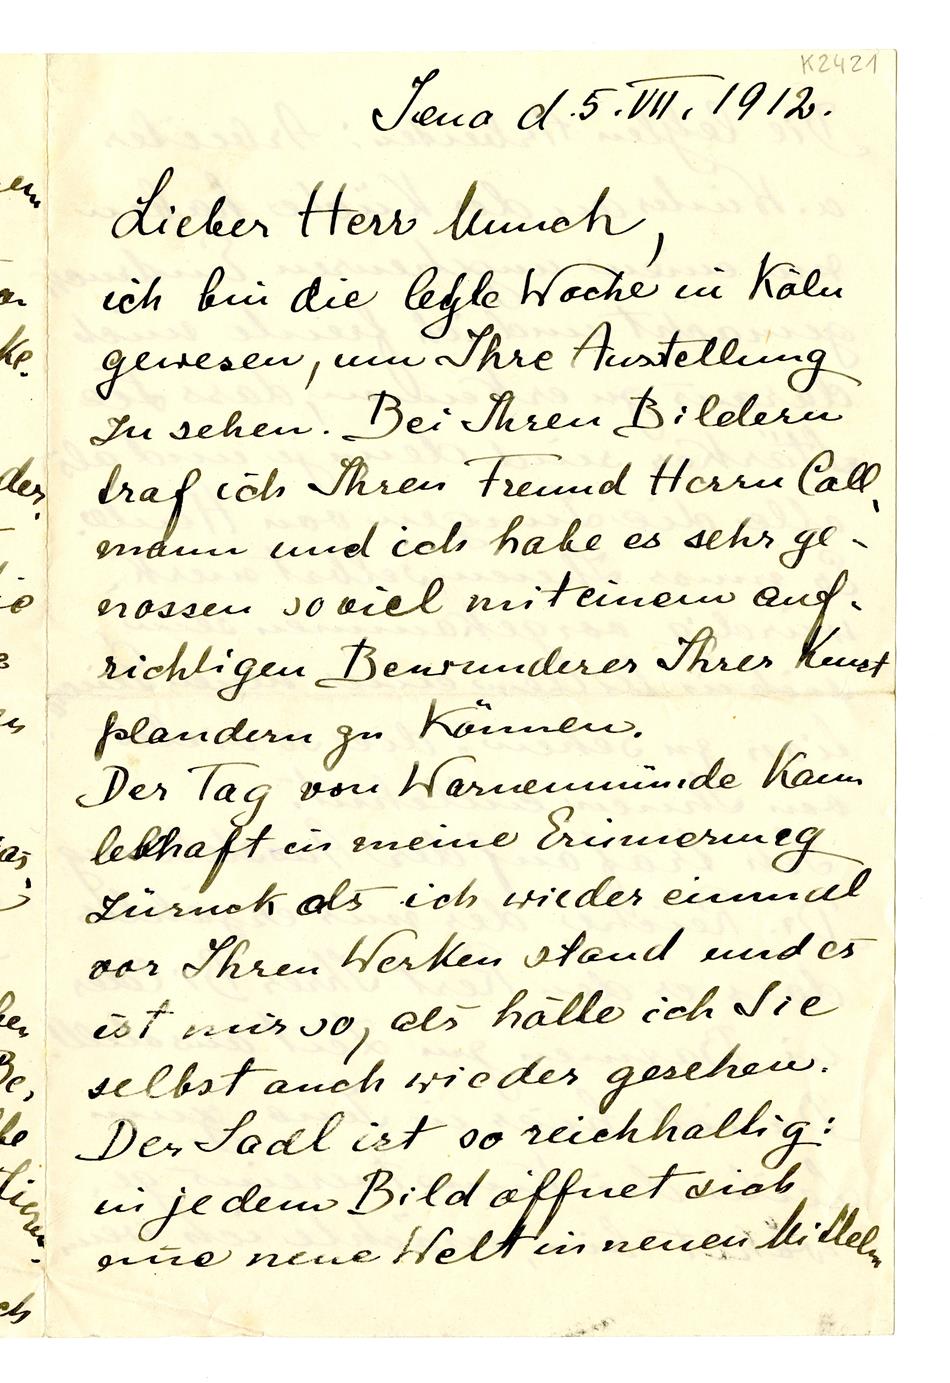 K2421
Jena d. 5. VII. 1912.
Lieber Herr Munch,
ich bin die letzte Woche in Köln
gewesen, um Ihre Austellung
zu sehen. Bei Ihren Bildern
traf ich Ihren Freund Herrn Coll-
mann und ich habe es sehr ge-
nossen soviel mit einem auf-
richtigen Bewunderer Ihrer Kunst
plaudern zu können.
Der Tag von Warnemünde kam
lebhaft in meine Erinnerung
zürück als ich wieder einmal
vor Ihren Werken stand und es
ist mir so, als hätte ich Sie
selbst auch wieder gesehen.
Der Saal ist so reichhaltig:
in jedem Bild öffnet sich
eine neue Welt in neuen Mitteln